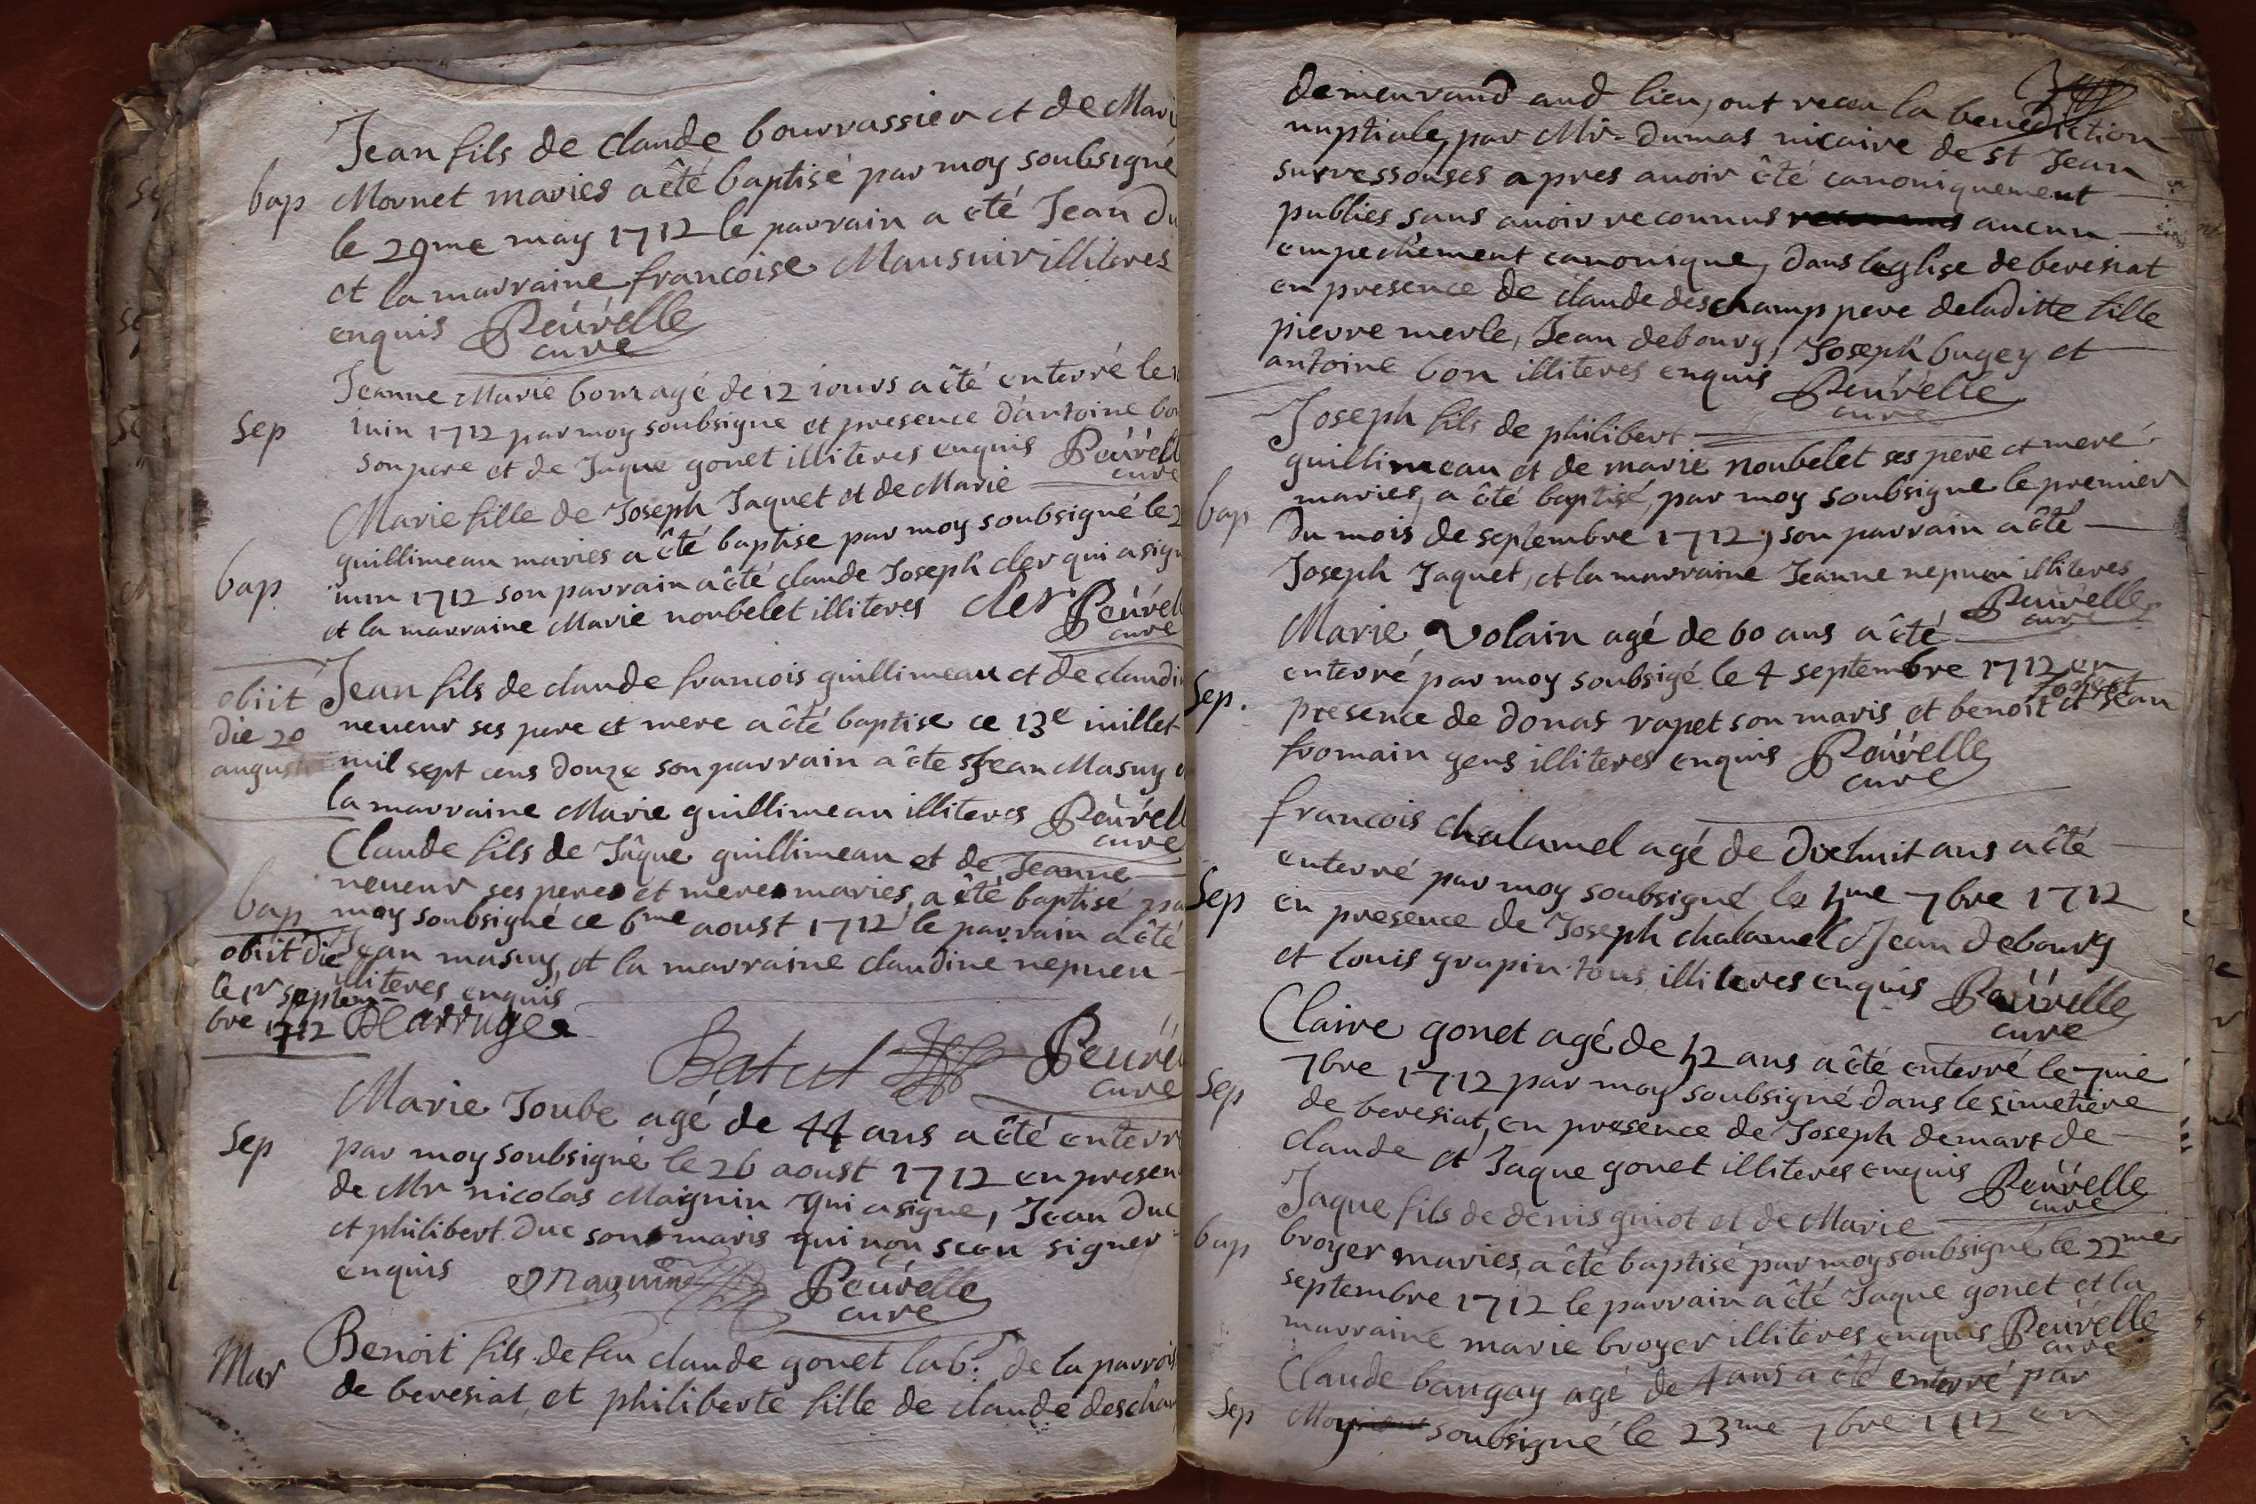 Jean fils de claude bourrassier et de Mari
bap Mornet maries a êté baptisé par moy soubsigné
le 29me may 1712 le parrain a eté Jean du
et la marraine francoise Mausuir illiteres
enquis Peúrelle
cure
Jeanne Marie bon agé de 12 iours a êté enterré le
Sep iuin 1712 par moy soubsigne et presence d'antoine bon
son pere et de Jaque gonet illiteres enquis Peúrelle
cure
Marie fille de Joseph Jaquet et de Marie
guillimeau maries a êté baptise par moy soubsigné le 2
bap iuin 1712 son parrain a êté claude Joseph cler qui a sign
et la marraine Marie noubelet illiteres cler Peúrell
cure
obiit Jean fils de claude francois guillimeau et de claudin
die 20 neueur ses pere et mere a êté baptise ce 13e iuillet
augusti mil sept cens douze son parrain a êté Jean Masuy
la marraine Marie guillimeau illiteres Peúrell
cure
Claude fils de Jâque guillimeau et de Jeanne
neueur ses peres et meres maries, a êté baptisé pa
bap moy soubsigné ce 6me aoust 1712 le parrain a êté
obiit die Jean masuy, et la marraine claudine nepueu
le 1r septem illiteres enquis
bre 1712
Batut Peúre
cure
Marie Joube agé de 44 ans a êté enterr
Sep par moy soubsigné le 26 aoust 1712 en presen
de Mr nicolas Maignin qui a signe, Jean Duc
et philibert Duc son maris qui non sceu signer
enquis Peúrelle
cure
Mar Benoit fils de feu claude gonet lab.r de la parrois
de beresiat, et philiberte fille de claude descham
demeurand aud lieu, ont receu la benediction
nuptiale, par Mr Dumas uicaire de st Jean
surressouses apres auoir êté canoniquement
publies sans auoir reconnus aucun
empechement canonique, dans leglise de beresiat
en presence de claude deschamp pere de laditte fille
pierre merle, Jean debourg, Joseph bugey et
antoine bon illiteres enquis Peúrelle
cure
Joseph fils de philibert
guillimeau et de marie noubelet ses pere et mere
maries, a êté baptisé, par moy soubsigne le premier
bap du mois de septembre 1712, son parrain a êté
Joseph Jaquet, et la marraine Jeanne nepueu illiteres
Peurelle
cure
Marie Volain agé de 60 ans a êté
enterré par moy soubsigé le 4 septembre 1712 en
Sep. presence de donas rapet son maris et benoit et Jean
fromain gens illiteres enquis Peúrelle
cure
francois chalamel agé de dixhuit ans a êté
enterré par moy soubsigné le 5me 7bre 1712
Sep en presence de Joseph chalamel & Jean debourg
et louis grapin tous illiteres enquis Peúrelle
cure
Claire gonet agé de 52 ans a êté enterré le 7me
7bre 1712 par moy soubsigné dans le simetiere
Sep de beresiat, en presence de Joseph demars de
claude et Jaque gonet illiteres enquis Peúrelle
cure
Jaque fils de denis guiot et de Marie
bap broyer maries, a êté baptisé par moy soubsigné le 22me
septembre 1712 le parrain a êté Jaque gonet et la
marraine marie broyer illiteres enquis Peúrelle
cure
Claude bangay agé de 4 ans a êté enterré par
Sep Moy soubsigné le 23me 7bre 1712 en